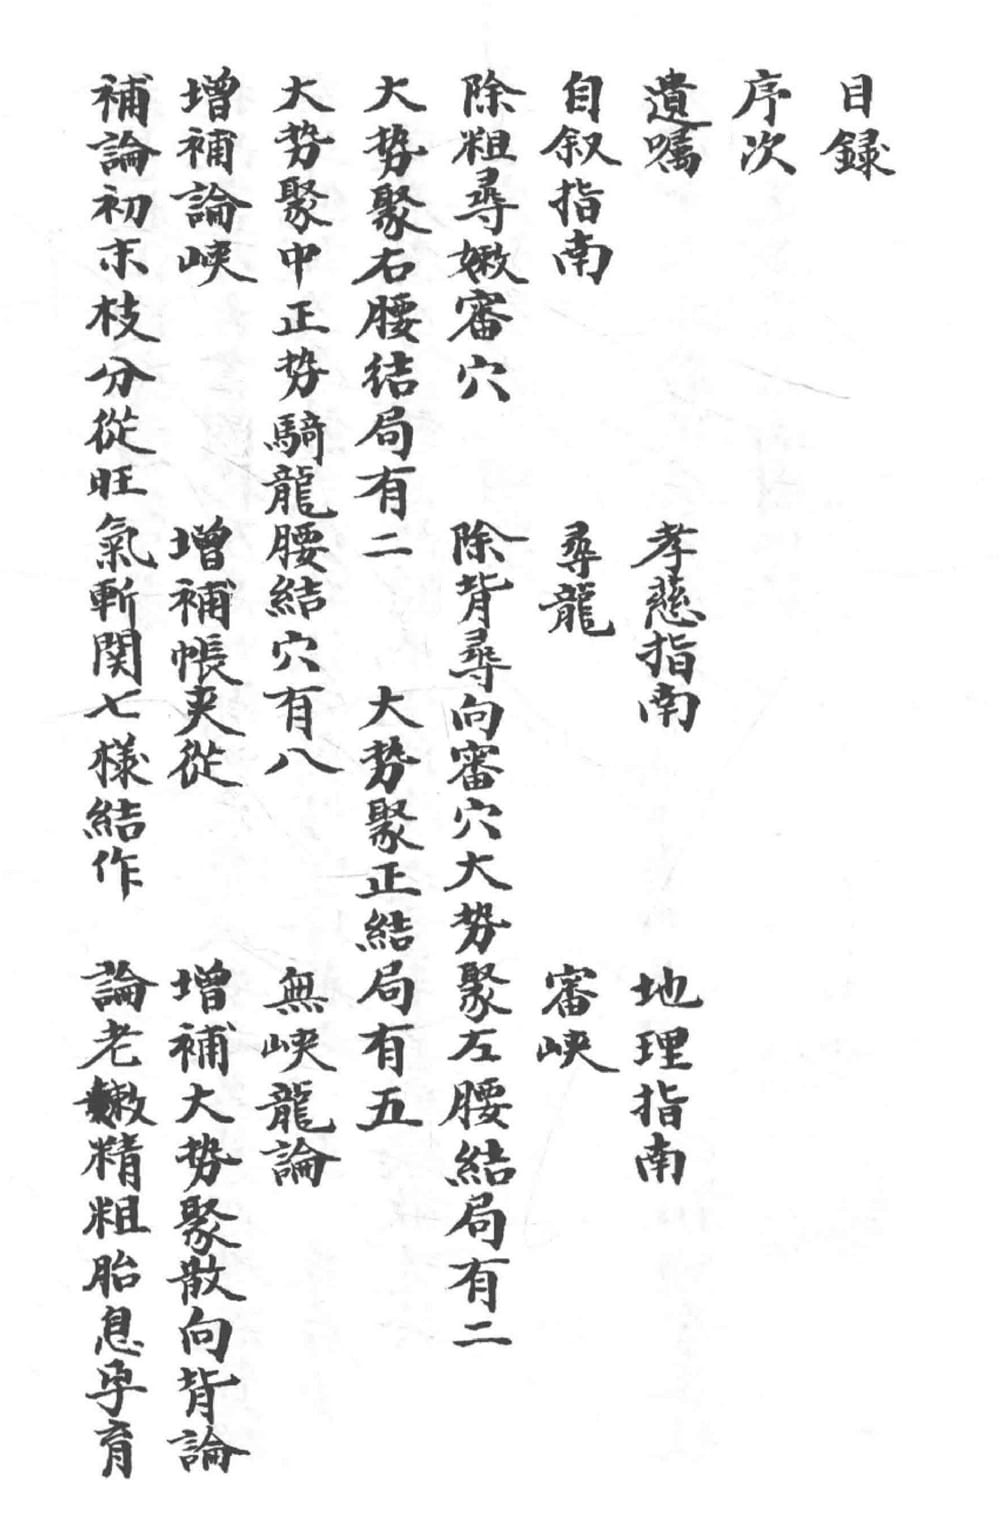 目錄
序次
遺嘱 孝慈指南 地理指南
自叙指南 尋龍 審峽
除粗尋嫩審穴 除背尋向審穴大势聚左腰結局有二
大势聚右腰结局有二 大势聚正結局有五
大势聚中正势騎龍腰結穴有八 無峽龍論
增補論峽 增補帳夾從 增補大势聚散向背論
補論初末枝分從旺氣斬関七樣結作 論老嫩精粗胎息孕育